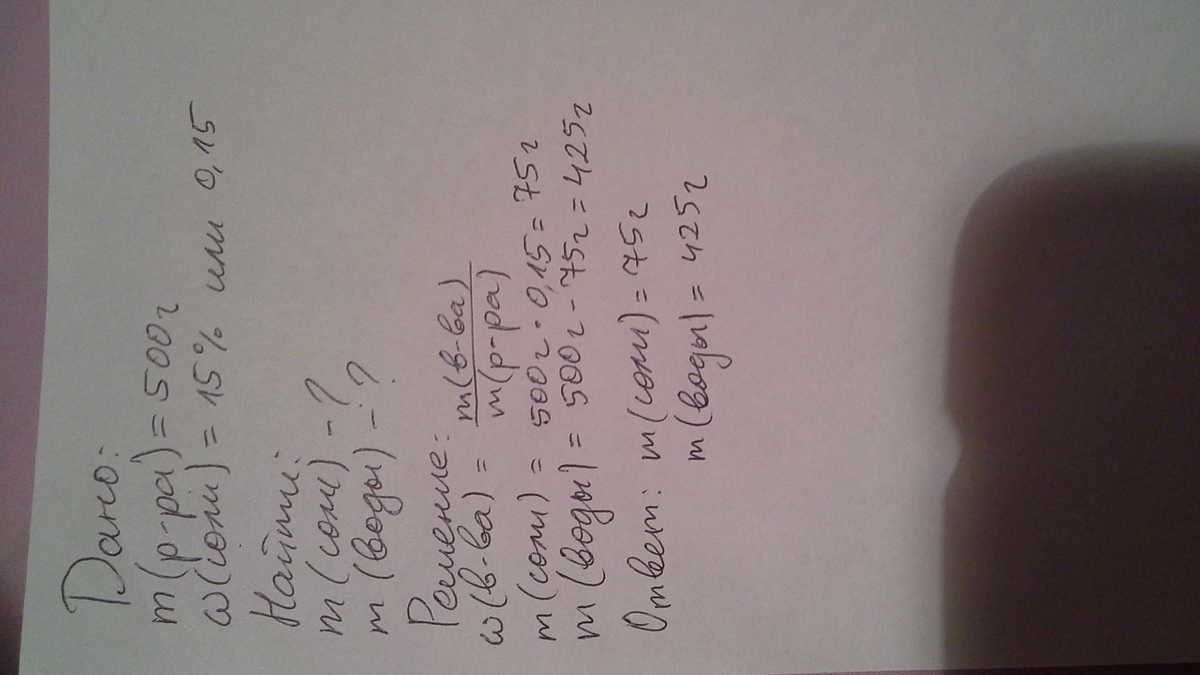 Дано:
m(р-ра) = 500г
ω(соли) = 15% или 0,15
Найти:
m(соли) - ?
m(воды) - ?
Решение:
ω(в-ва) = m(в-ва)
m(р-ра)
m(соли) = 500г · 0,15 = 75г
m(воды) = 500г - 75г = 425г
Ответ: m(соли) = 75г
m(воды) = 425г